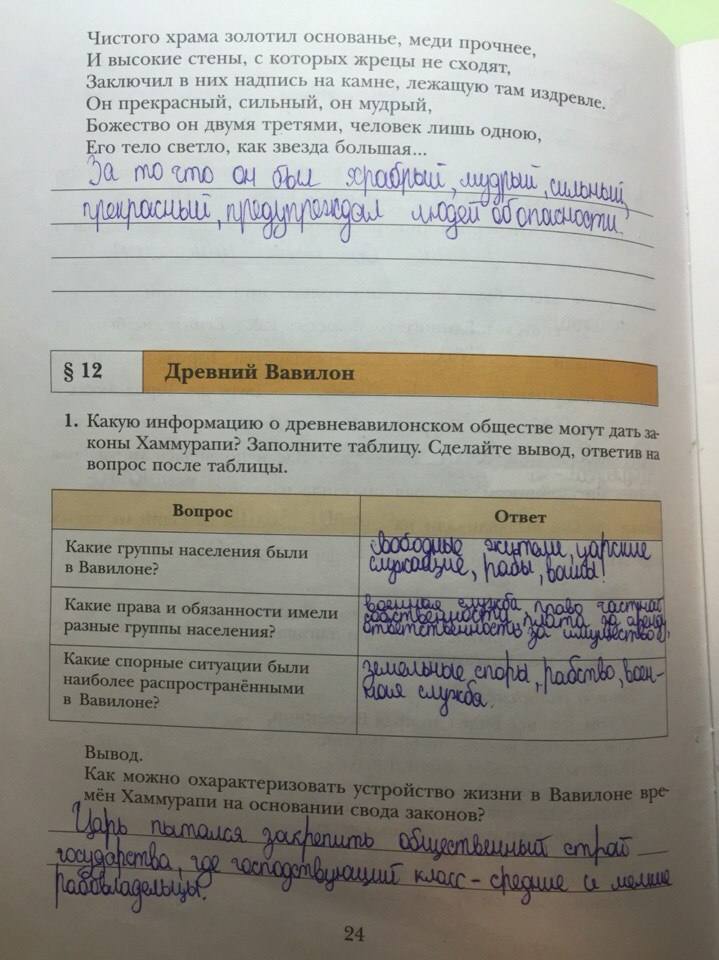 Чистого храма золотил основанье, меди прочнее,
И высокие стены, с которых жрецы не сходят,
Заключил в них надпись на камне, лежащую там издревле.
Он прекрасный, сильный, он мудрый,
Божество он двумя третями, человек лишь одною,
Его тело светло, как звезда большая...
За то что он был храбрый, мудрый, сильный,
прекрасный, предупреждал людей об опасности.
§ 12 Древний Вавилон
1. Какую информацию о древневавилонском обществе могут дать за-
коны Хаммурапи? Заполните таблицу. Сделайте вывод, ответив на
вопрос после таблицы.
Вопрос Ответ
Какие группы населения были
в Вавилоне?
свободные жители, царские
служащие, рабы, воины!
Какие права и обязанности имели
разные группы населения?
военная служба, право частной
собственности, плата за аренду,
ответственность за имущество
Какие спорные ситуации были
наиболее распространёнными
в Вавилоне?
земельные споры, рабство, воен-
ная служба.
Вывод.
Как можно охарактеризовать устройство жизни в Вавилоне вре-
мён Хаммурапи на основании свода законов?
Царь пытался закрепить общественный страй
государства, где господствующий класс - средние и мелкие
рабовладельцы.
24